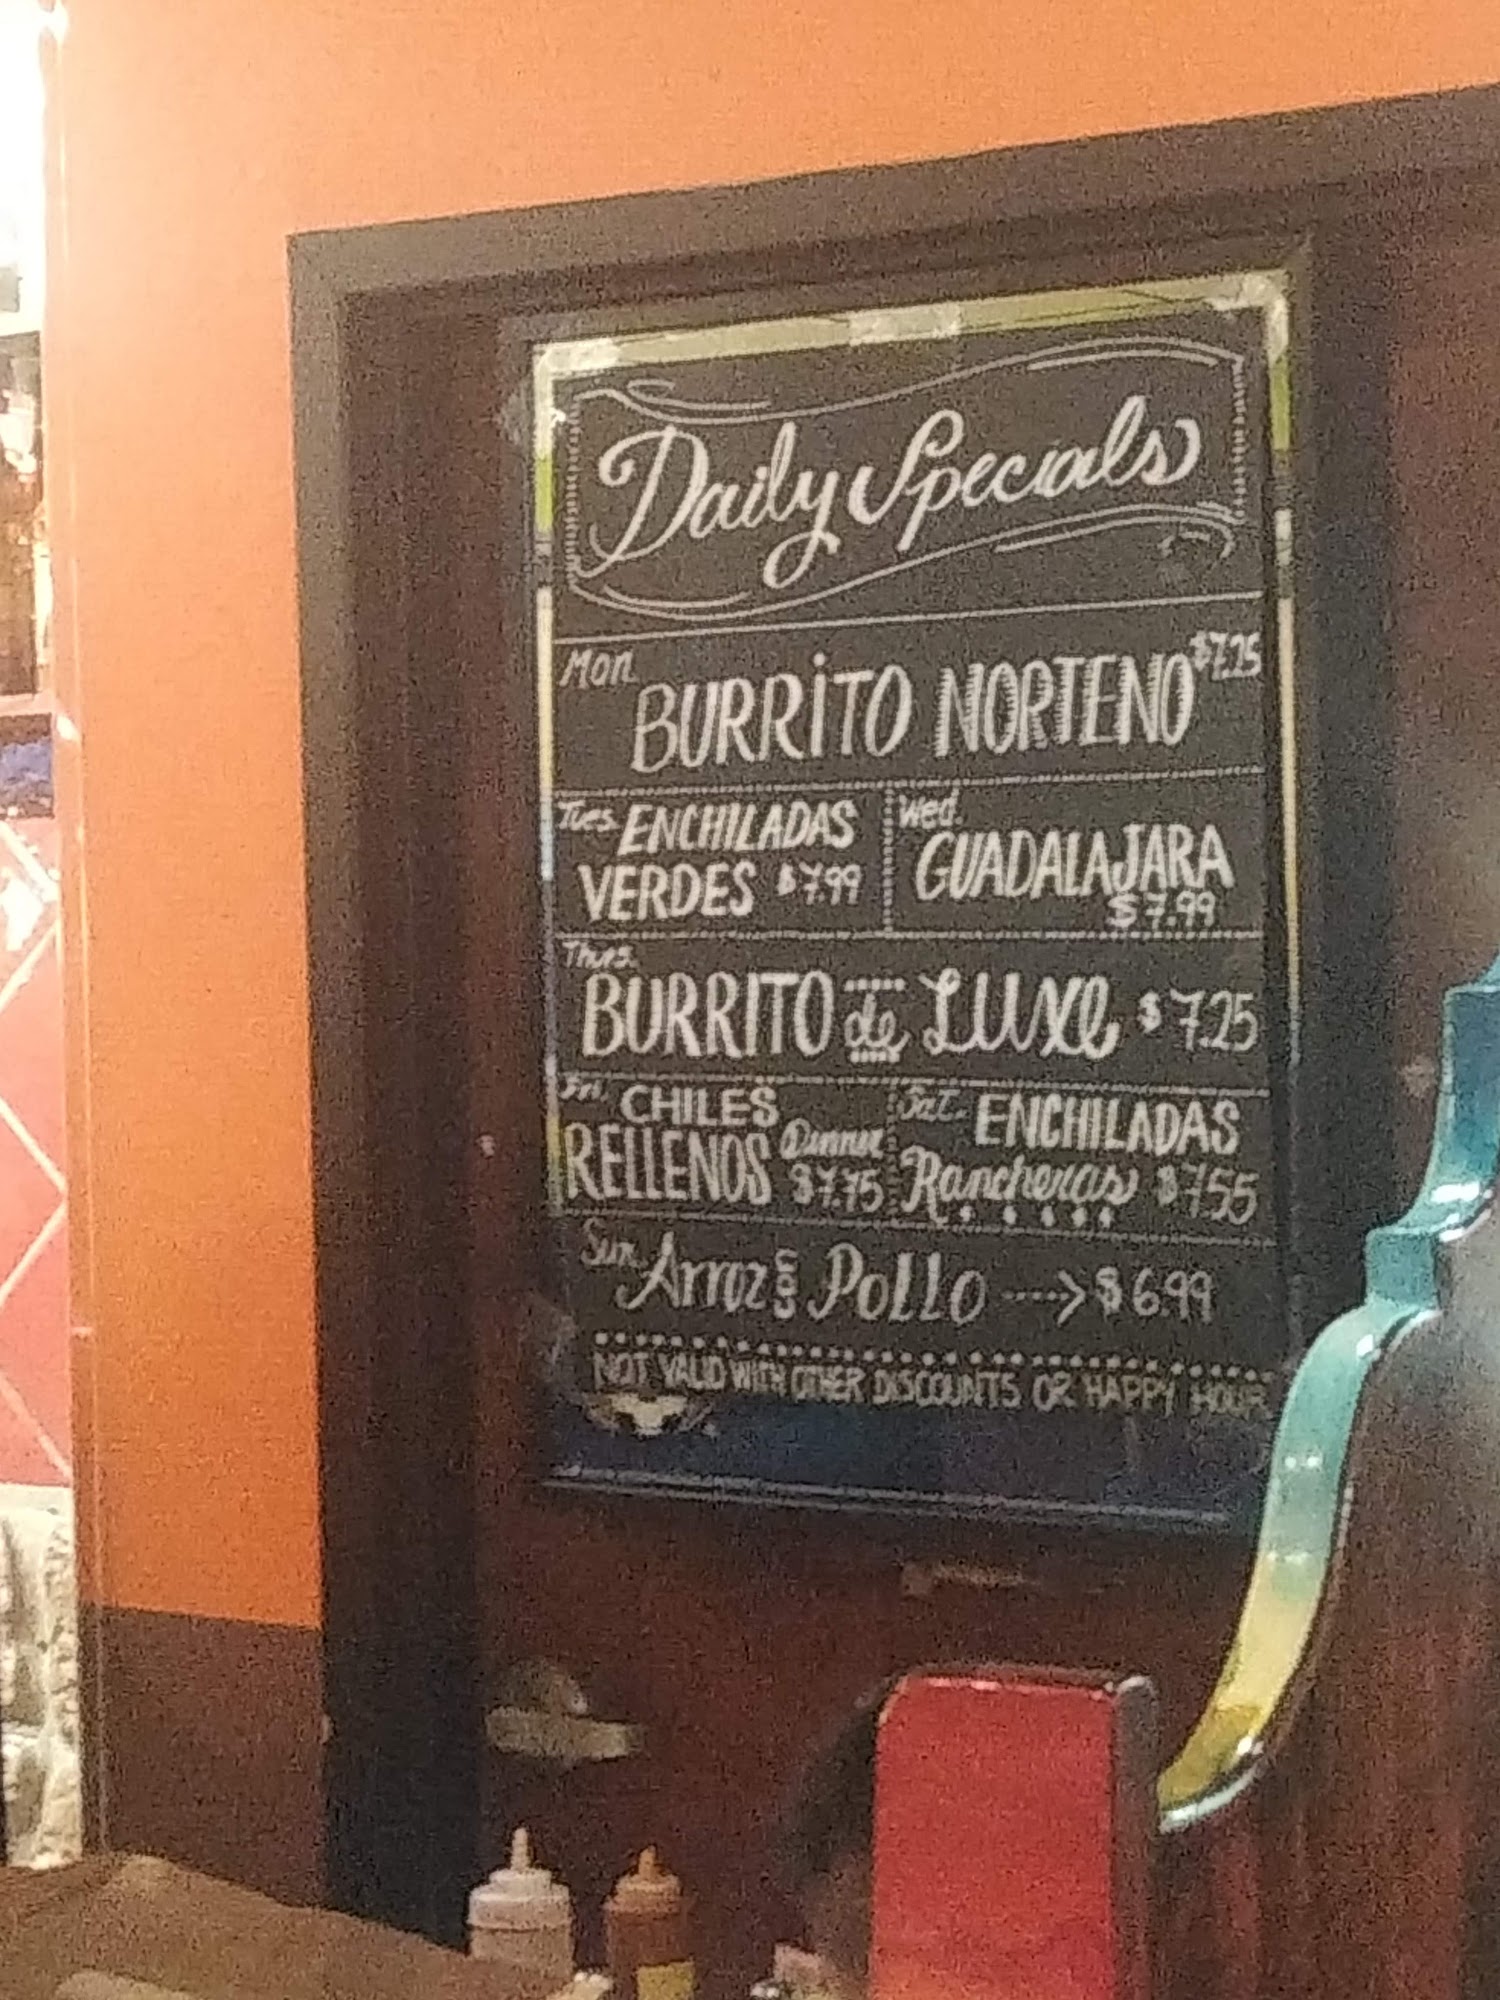 Daily Specials
Mon $7.25
BURRITO NORTENO
Tues. ENCHILADAS
VERDES $7.99
Wed.
GUADALAJARA
$7.99
Thurs.
BURRITO de LUXE $7.25
Fri. CHILES
RELLENOS Dinner
$7.75
Sat. ENCHILADAS
Rancheras $7.55
Sun Arroz con Pollo ----> $6.99
NOT VALID WITH OTHER DISCOUNTS OR HAPPY HOUR